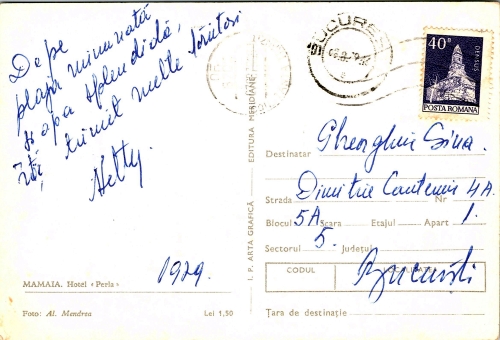 De pe
plaja minunată
și apa splendidă,
îți trimit multe sărutări
Netty.
1979.
MAMAIA. Hotel «Perla»
Foto: Al. Mendrea
Lei 1,50
I. P. ARTA GRAFICĂ
EDITURA MERIDIANE
BUCUREȘTI
40 B
DENSUȘ
POSTA ROMANA
Destinatar Gheorghiu Sina.
Strada Dimitrie Cantemir Nr 4A
Blocul 5A Scara Etajul Apart 1.
Sectorul 5. Județul
CODUL LOCALITATEA
București
Țara de destinație